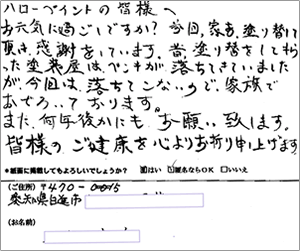 ハローペイントの皆様へ
お元気に過ごしですか？今回、家を塗り替して
頂き、感謝をしています。昔、塗り替をしてもら
った塗装屋はペンキが落ちてきていました
が、今回は、落ちてこないので、家族で
およろこっております。
また、何年後かにも、お願い致します。
皆様のご健康を心よりお祈り申し上げます
＊紙面に掲載してもよろしいでしょうか？ はい 匿名ならOK いいえ
（ご住所）〒470-0015
愛知県日進市
（お名前）